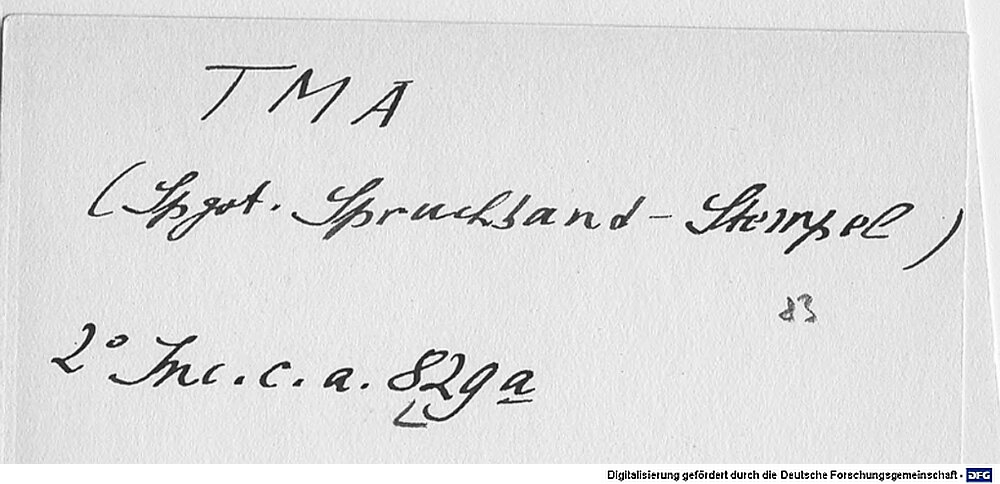 TMA
(Spgot. Spruchband-Stempel)
83
2° Inc. c. a. 829a
Digitalisierung gefördert durch die Deutsche Forschungsgemeinschaft - DFG